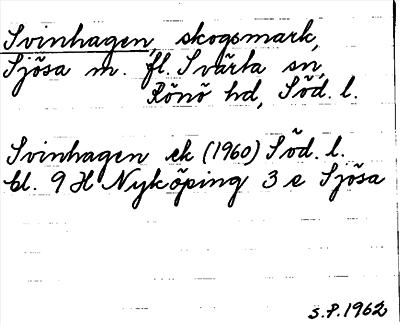 Svinhagen, skogsmark,
Sjösa m. fl. Svärta sn,
Rönö hd, Söd. l.
Svinhagen ek (1960) Söd. l.
bl. 9 H Nyköping 3 e Sjösa
S.P. 1962